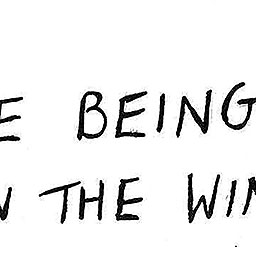 E BEING
N THE WIN